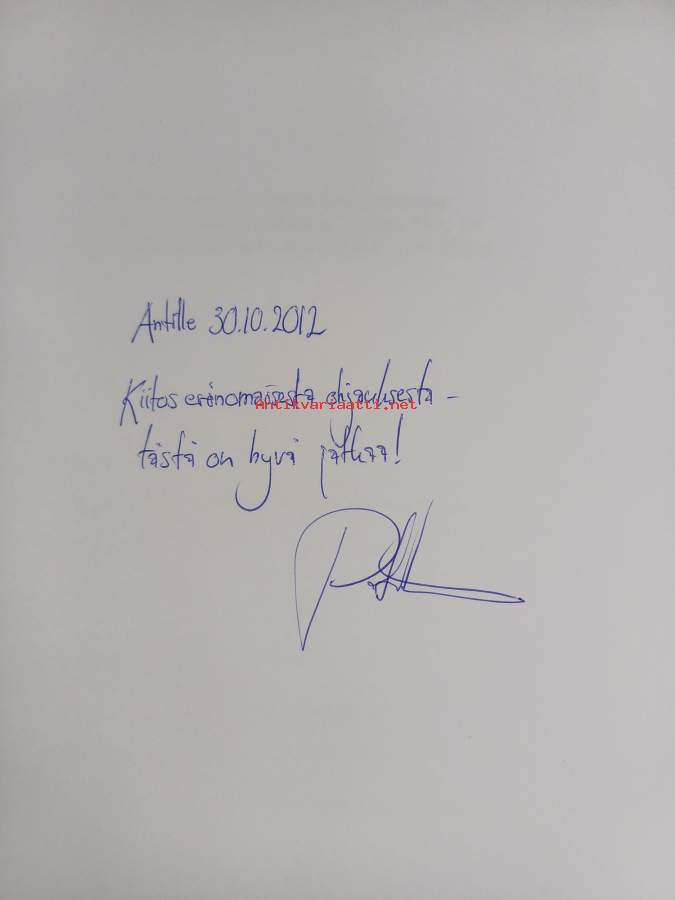 Antille 30.10.2012
Kiitos erinomaisesta ohjauksesta -
Antikvariaatti.net
tästä on hyvä jatkaa!